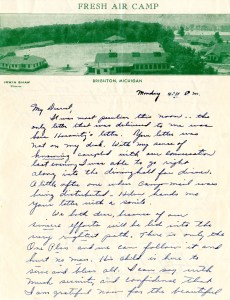 FRESH AIR CAMP
BRIGHTON, MICHIGAN
Monday P.M.
My Dearest,
It was most peculiar this noon... the
only letter that was delivered to me was
from letter. Your letter was
not on my desk. With my sense of
knowing coupled with our conversation
last evening I was able to go right
along into the dining hall for dinner.
A little after one when Camp mail was
being distributed, Helen hands me
your letter with a smile.
We both dear, because of our
sincere efforts will be led into the
very right path. There is only the
One Plan and we can follow it and
hurt no man. His child is here to
bless all. I can say with
much security and confidence that
I am grateful now for the beautiful